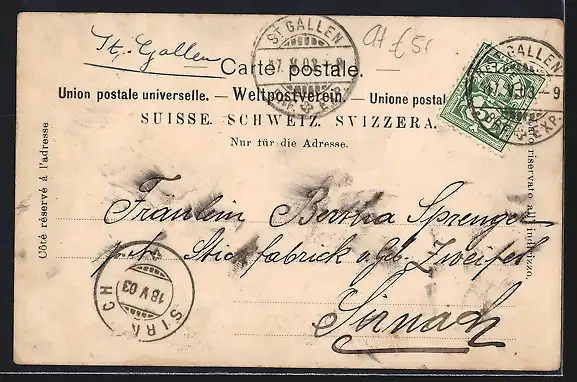 St. Gallen
ST GALLEN
17.V.03.-8
BRF. & EXP.
CH £5
Carte postale.
Union postale universelle. — Weltpostverein. — Unione postale
SUISSE. SCHWEIZ. SVIZZERA.
Nur für die Adresse.
GALLEN
17.V.03.-9
EXP.
Côté réservé à l'adresse
riservato all' indirizzo.
Fräulein Bertha Sprenger
Stickfabrick
Sirnach
SIRNACH
18 V 03